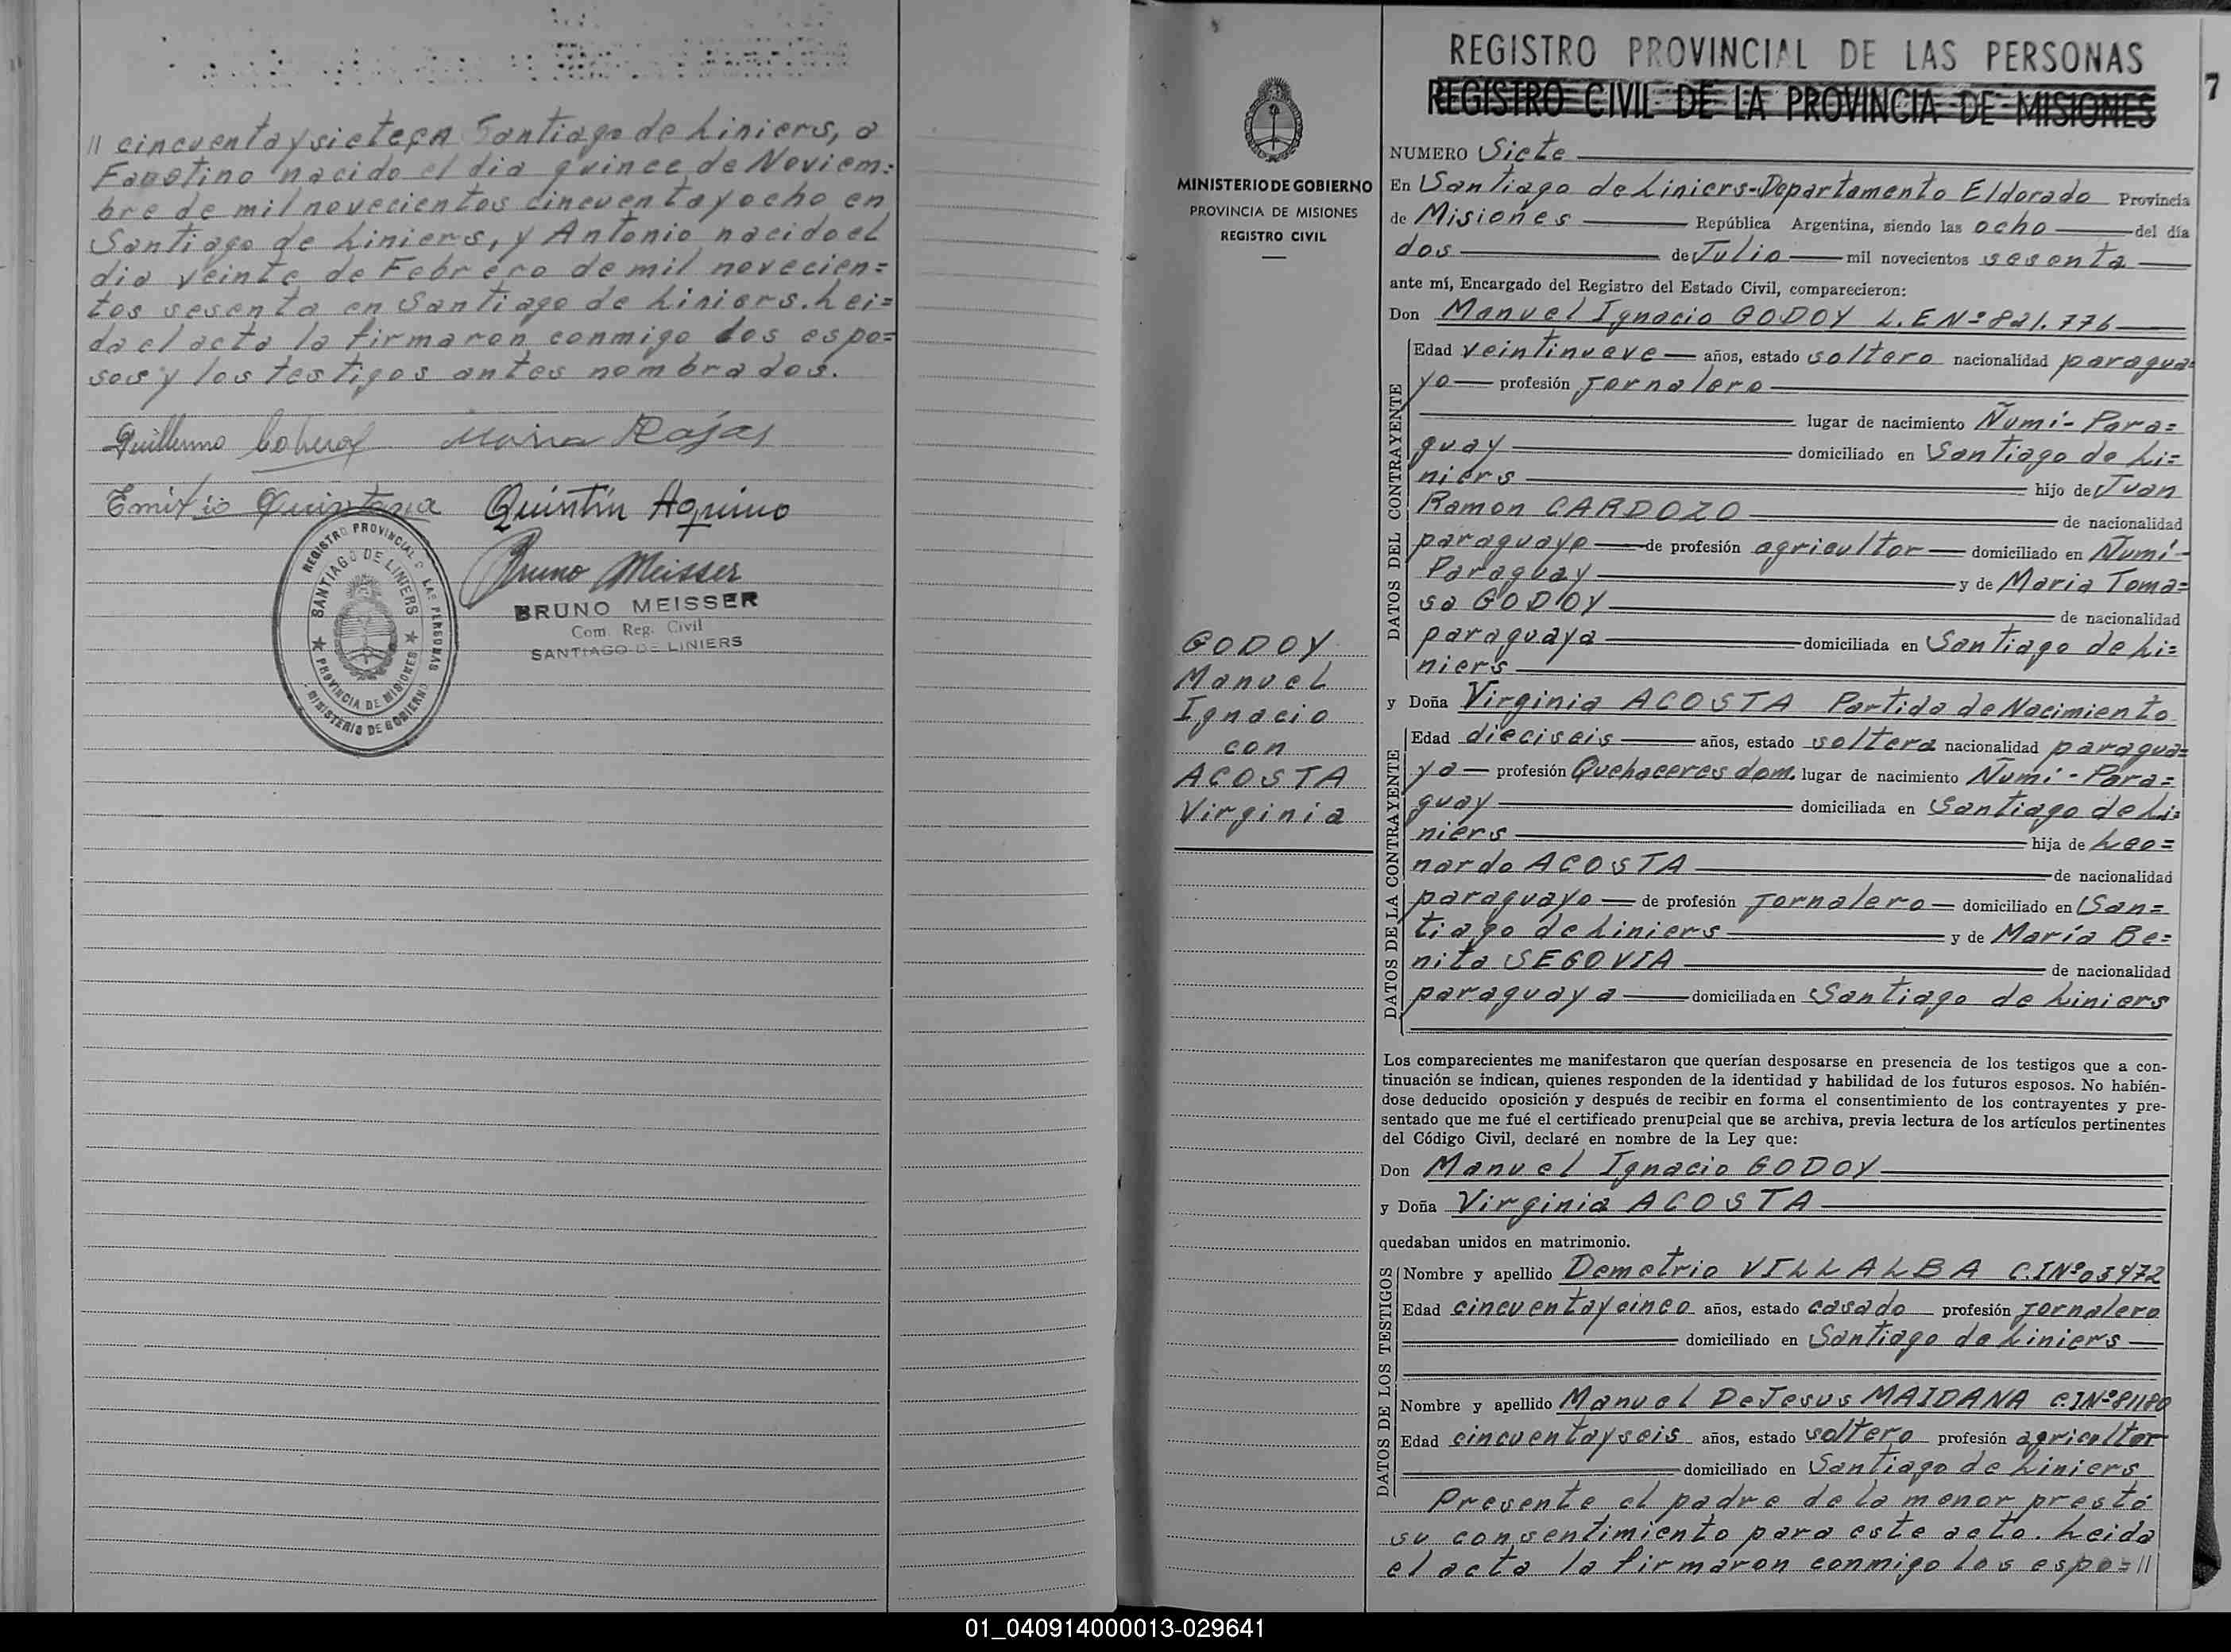 // cincuentaysieteen Santiago de Liniers, a
Faustino nacido el dia quince de Noviem=
bre de mil novecientos cincuentayocho en
Santiago de Liniers, y Antonio nacido el
dia veinte de Febrero de mil novecien=
tos sesenta en Santiago de Liniers. Lei=
da el acta la firmaron conmigo los espo=
sos y los testigos antes nombrados.
Guillermo Maria Rojas
Emilio Quintana Quintín Aquino
Bruno Meisser
BRUNO MEISSER
Com. Reg. Civil
SANTIAGO DE LINIERS
REGISTRO PROVINCIAL D LAS PERSONAS
SANTIAGO DE LINIERS
PROVINCIA DE MISIONES
MINISTERIO DE GOBIERNO
REGISTRO PROVINCIAL DE LAS PERSONAS
REGISTRO CIVIL DE LA PROVINCIA DE MISIONES
7
MINISTERIO DE GOBIERNO
PROVINCIA DE MISIONES
REGISTRO CIVIL
GODOY
Manuel
Ignacio
con
ACOSTA
Virginia
NUMERO Siete
En Santiago de Liniers-Departamento Eldorado Provincia
de Misiones República Argentina, siendo las ocho del día
dos de Julio mil novecientos sesenta
ante mí, Encargado del Registro del Estado Civil, comparecieron:
Don Manuel Ignacio GODOY L.E Nº 821.776
DATOS DEL CONTRAYENTE
Edad veintinueve años, estado soltero nacionalidad paragua=
yo profesión Jornalero
lugar de nacimiento Ñumi-Para=
guay domiciliado en Santiago de Li=
niers hijo de Juan
Ramon CARDOZO de nacionalidad
paraguayo de profesión agricultor domiciliado en Ñumi-
Paraguay y de Maria Toma=
sa GODOY de nacionalidad
paraguaya domiciliada en Santiago de Li=
niers
y Doña Virginia ACOSTA Partida de Nacimiento
DATOS DE LA CONTRAYENTE
Edad dieciseis años, estado soltera nacionalidad paragua=
ya profesión Quehaceres dom. lugar de nacimiento Ñumi-Para=
guay domiciliada en Santiago de Li=
niers hija de Leo=
nardo ACOSTA de nacionalidad
paraguayo de profesión Jornalero domiciliado en San=
tiago de Liniers y de María Be=
nita SEGOVIA de nacionalidad
paraguaya domiciliada en Santiago de Liniers
Los comparecientes me manifestaron que querían desposarse en presencia de los testigos que a con-
tinuación se indican, quienes responden de la identidad y habilidad de los futuros esposos. No habién-
dose deducido oposición y después de recibir en forma el consentimiento de los contrayentes y pre-
sentado que me fué el certificado prenupcial que se archiva, previa lectura de los artículos pertinentes
del Código Civil, declaré en nombre de la Ley que:
Don Manuel Ignacio GODOY
y Doña Virginia ACOSTA
quedaban unidos en matrimonio.
DATOS DE LOS TESTIGOS
Nombre y apellido Demetrio VILLALBA C.INº03472
Edad cincuentaycinco años, estado casado profesión Jornalero
domiciliado en Santiago de Liniers
Nombre y apellido Manuel DeJesus MAIDANA C.INº81180
Edad cincuentayseis años, estado soltero profesión agricultor
domiciliado en Santiago de Liniers
Presente el padre de la menor prestó
su consentimiento para este acto. Leida
el acta la firmaron conmigo los espo=//
01_040914000013-029641